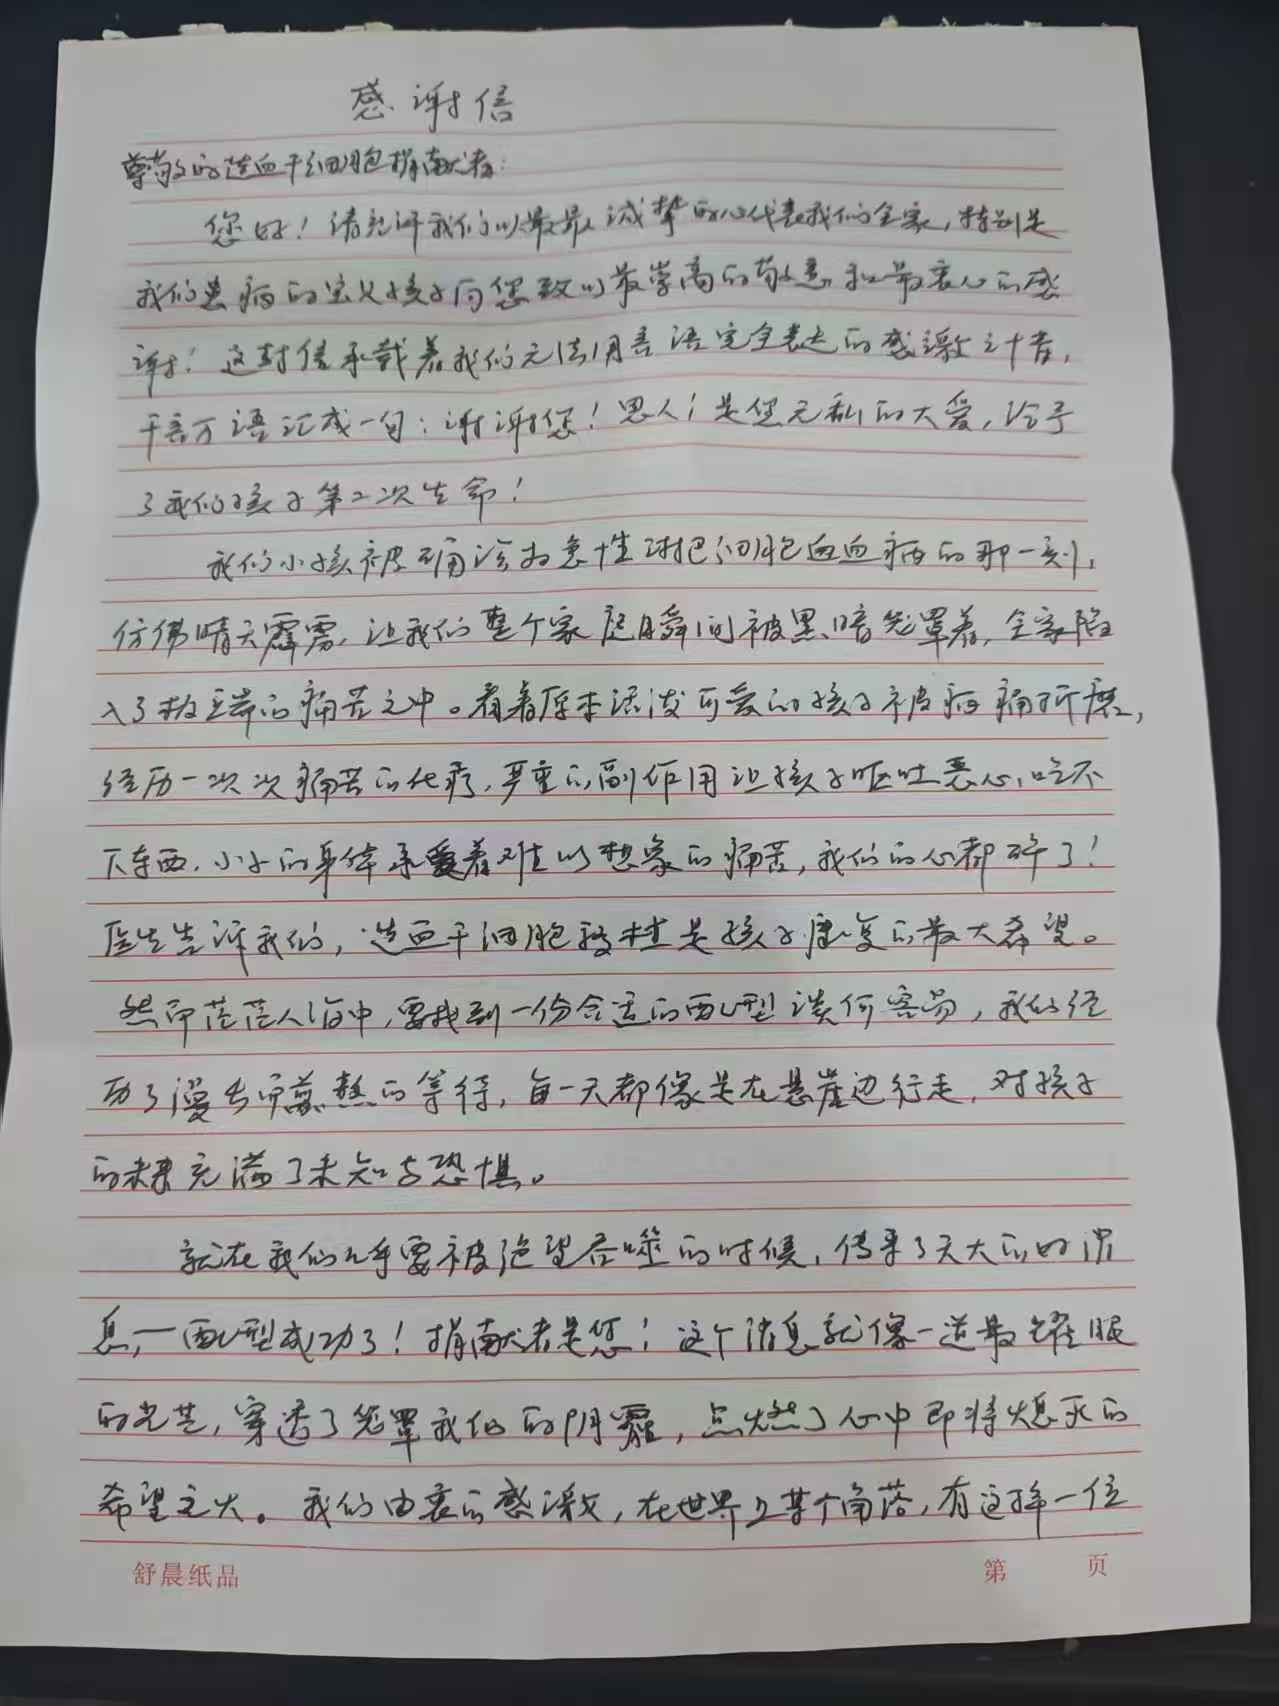 感谢信
尊敬的造血干细胞捐献者：
您好！请允许我们以最最诚挚的心代表我们全家，特别是
我们患病的宝贝孩子向您致以最崇高的敬意和最衷心的感
谢！这封信承载着我们无法用言语完全表达的感激之情，
千言万语汇成一句：谢谢您！恩人！是您无私的大爱，给予
了我们孩子第二次生命！
我们小孩被确诊为急性淋巴细胞白血病的那一刻，
仿佛晴天霹雳，让我们整个家庭瞬间被黑暗笼罩着，全家陷
入了极端的痛苦之中。看着原本活泼可爱的孩子被病痛折磨，
经历一次次痛苦的化疗，严重的副作用让孩子呕吐恶心，吃不
下东西，小小的身体承受着难以想象的痛苦，我们的心都碎了！
医生告诉我们，造血干细胞移植是孩子康复的最大希望。
然而茫茫人海中，要找到一份合适的配型谈何容易，我们经
历了漫长而煎熬的等待，每一天都像是在悬崖边行走，对孩子
的未来充满了未知与恐惧。
就在我们几乎要被绝望吞噬的时候，传来了天大的好消
息，一配型成功了！捐献者是您！这个消息就像一道最耀眼
的光芒，穿透了笼罩我们的阴霾，点燃了心中即将熄灭的
希望之火。我们由衷的感激，在世界上某个角落，有这样一位
舒晨纸品 第 页